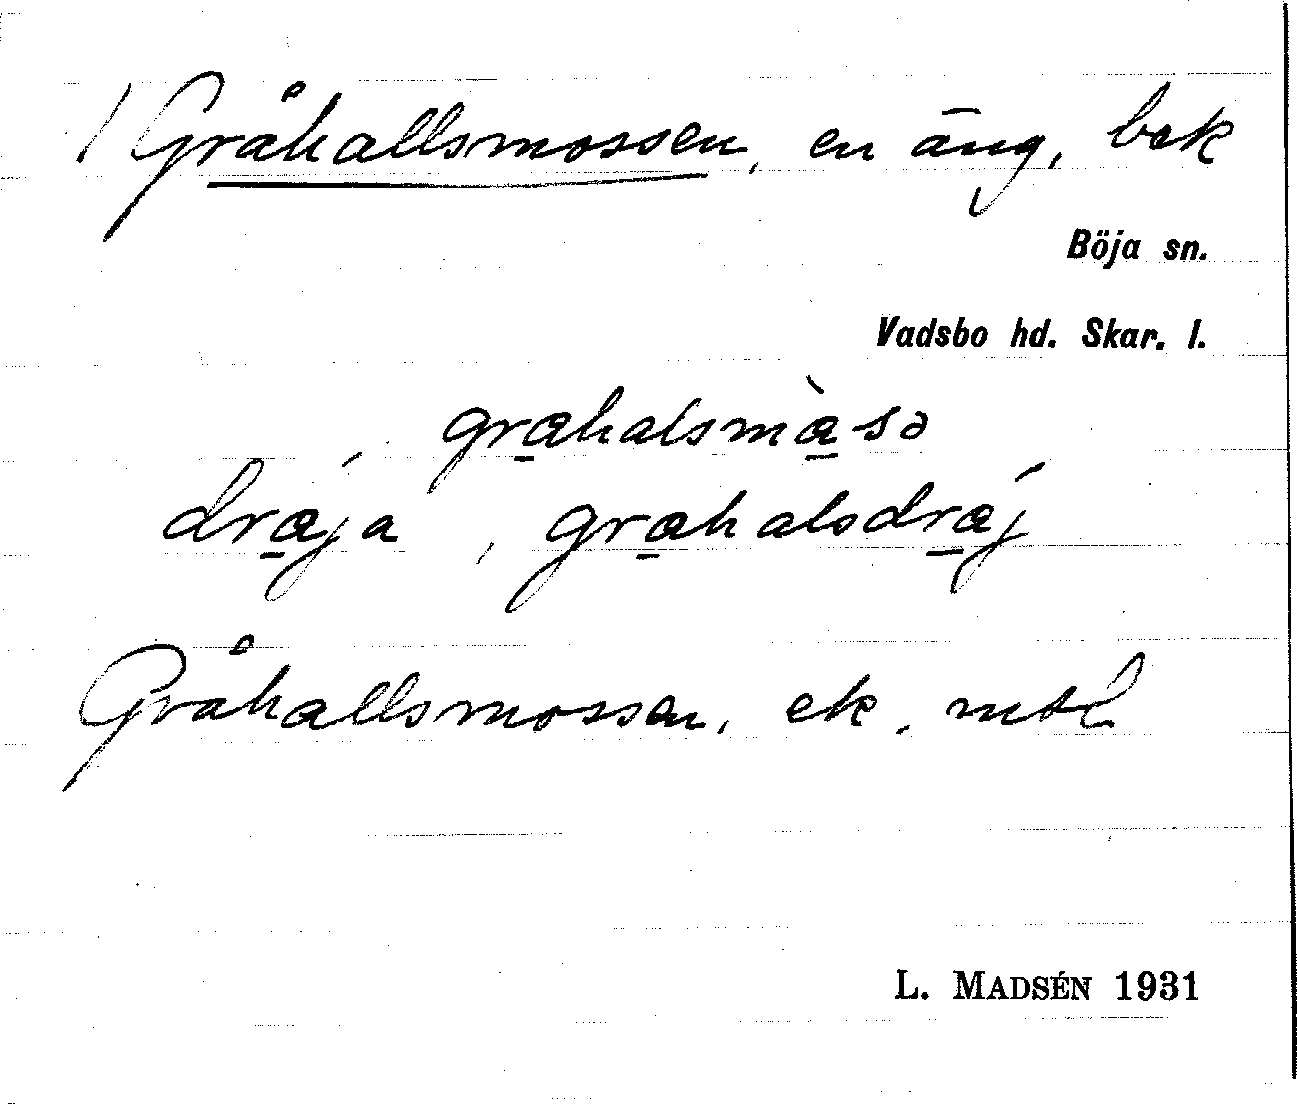 1 Gråhallsmossen, en äng, bek
Böja sn.
Vadsbo hd. Skar. l.
grahalsmàsə
drája, grahalsdráj
Gråhallsmossen, ek.
L. MADSÉN 1931